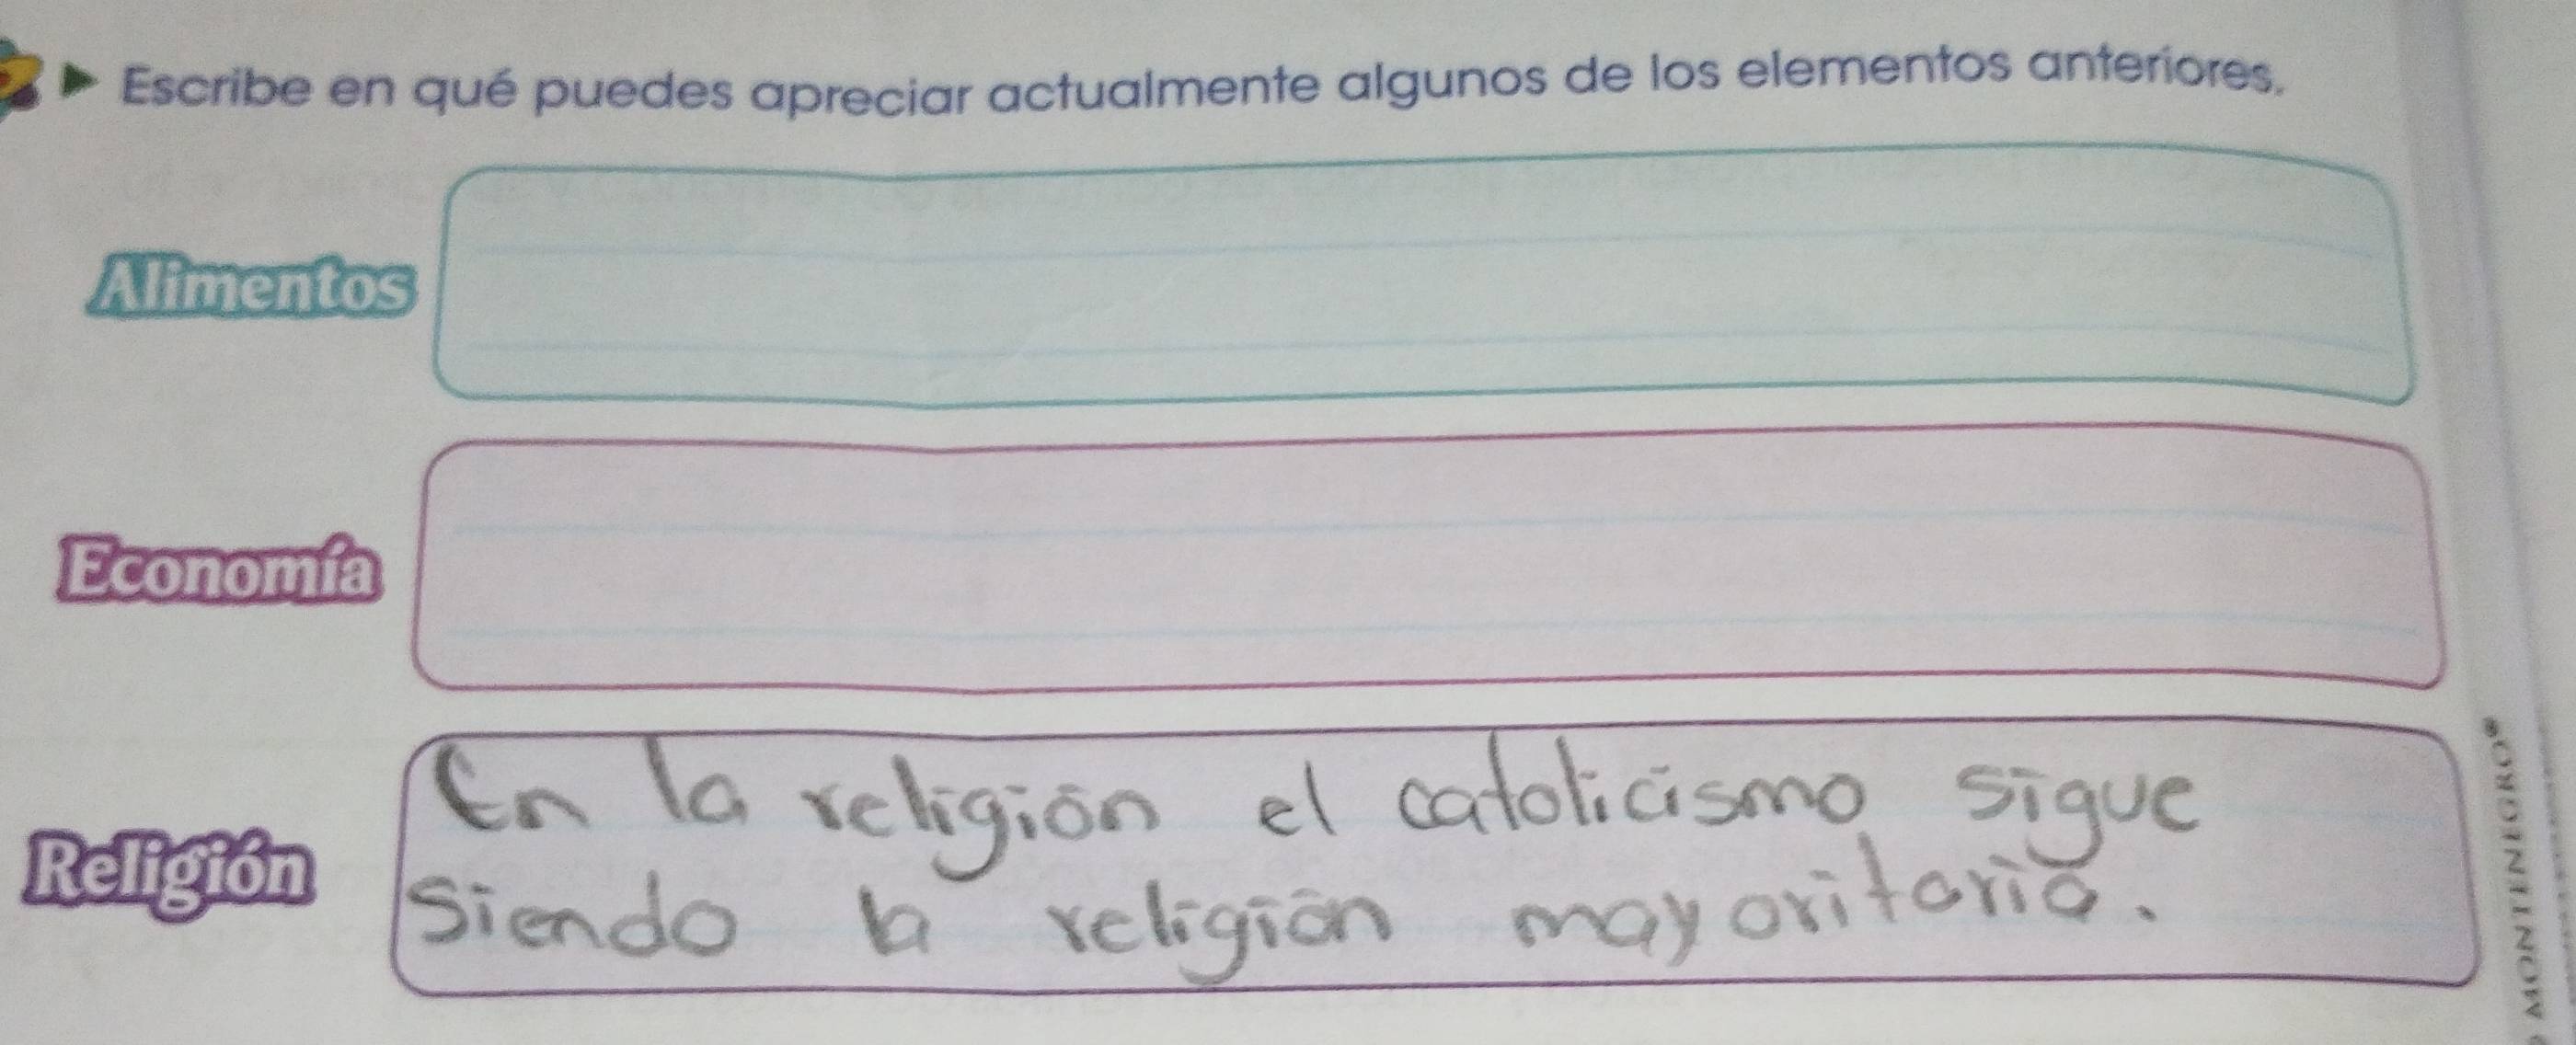 Escribe en qué puedes apreciar actualmente algunos de los elementos anteriores.
Alimentos
Economía
Religión
En la religión el catolicismo sigue
siendo la religión mayoritaria.
MONTENEGRO®